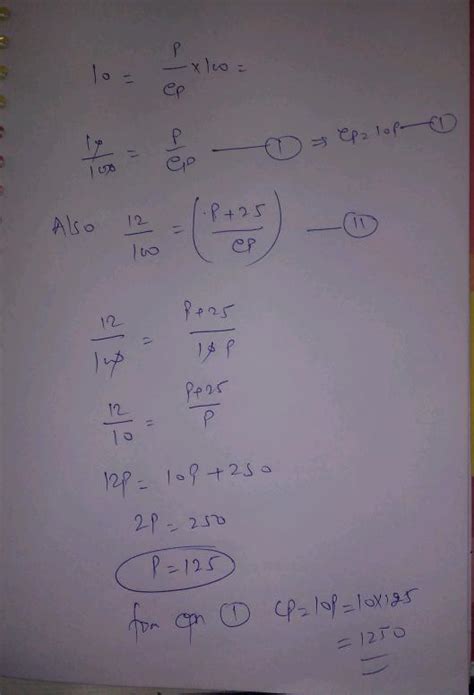 10 = P/CP × 100 =
10/100 = P/CP —— (I) ⇒ CP = 10P — (I)
Also 12/100 = (P+25/CP) —— (II)
12/100 = P+25/10P
12/10 = P+25/P
12P = 10P + 250
2P = 250
P = 125
from eqn (I) CP = 10P = 10×125
= 1250